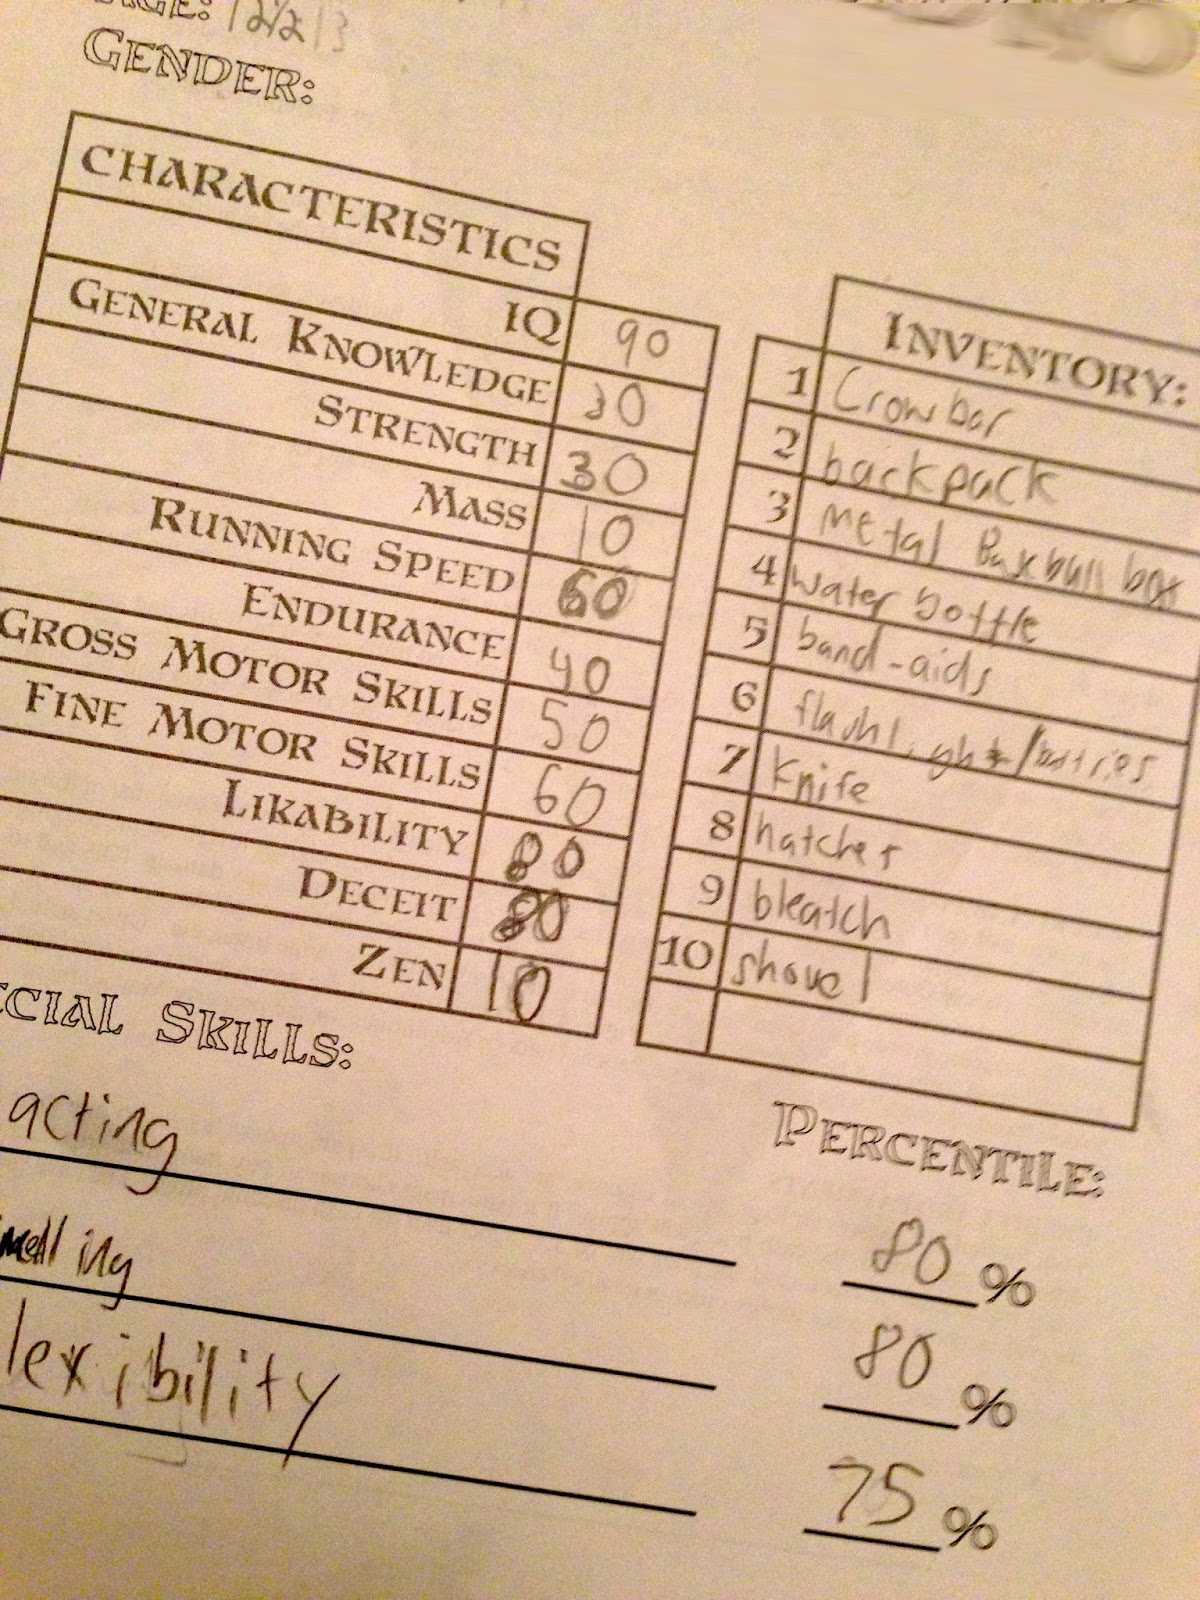 AGE: 12 1/2 13
GENDER:
CHARACTERISTICS
IQ 90
GENERAL KNOWLEDGE 30
STRENGTH 30
MASS 10
RUNNING SPEED 60
ENDURANCE 40
GROSS MOTOR SKILLS 50
FINE MOTOR SKILLS 60
LIKABILITY 80
DECEIT 80
ZEN 10
INVENTORY:
1 Crowbar
2 backpack
3 metal Baxball box
4 water bottle
5 band-aids
6 flashlight/battries
7 knife
8 hatchet
9 bleatch
10 shovel
CIAL SKILLS:
PERCENTILE:
acting 80 %
melling 80 %
lexibility 75 %